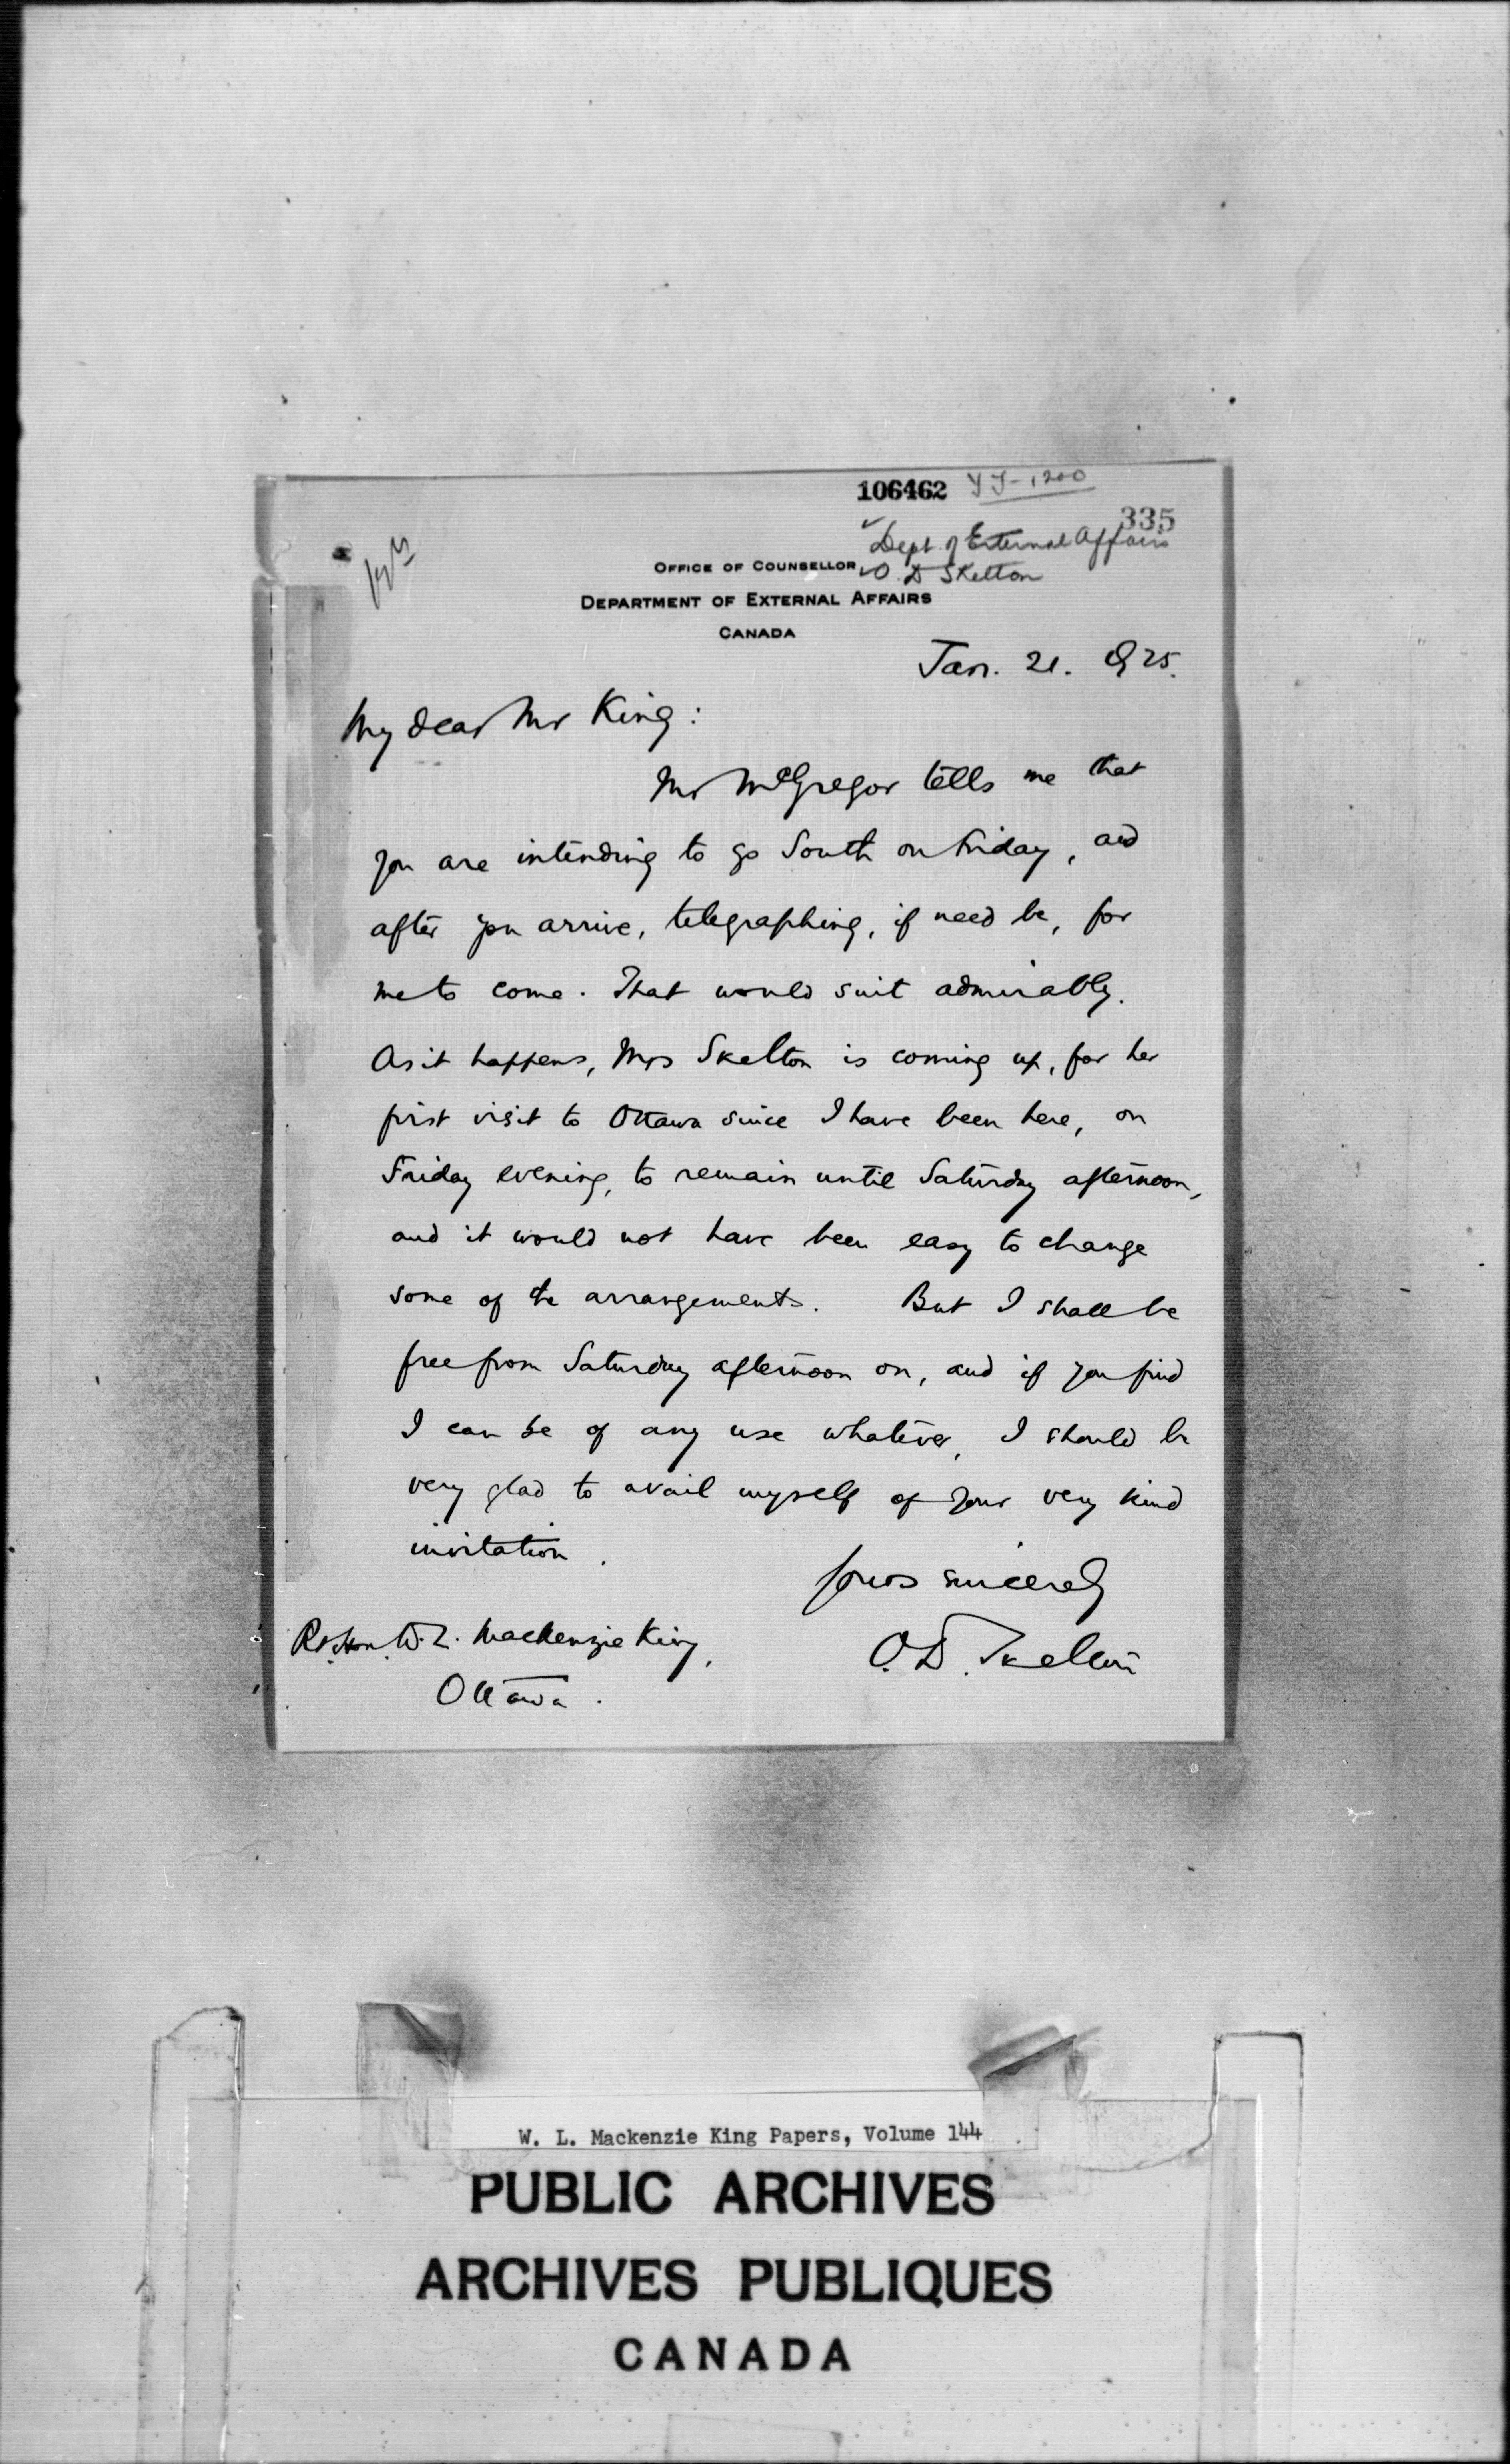 106462 YJ-1200
335
Dept. of External Affairs
OFFICE OF COUNSELLOR O. D Skelton
DEPARTMENT OF EXTERNAL AFFAIRS
CANADA
Jan. 21. 1925.
My dear Mr King:
Mr McGregor tells me that
you are intending to go South on Friday, and
after you arrive, telegraphing, if need be, for
me to come. That would suit admirably.
As it happens, Mrs Skelton is coming up, for her
first visit to Ottawa since I have been here, on
Friday evening, to remain until Saturday afternoon,
and it would not have been easy to change
some of the arrangements. But I shall be
free from Saturday afternoon on, and if you find
I can be of any use whatever, I should be
very glad to avail myself of your very kind
invitation.
Yours sincerely
O. D. Skelton
Rt. Hon. W. L. Mackenzie King,
Ottawa.
W. L. Mackenzie King Papers, Volume 144
PUBLIC ARCHIVES
ARCHIVES PUBLIQUES
CANADA